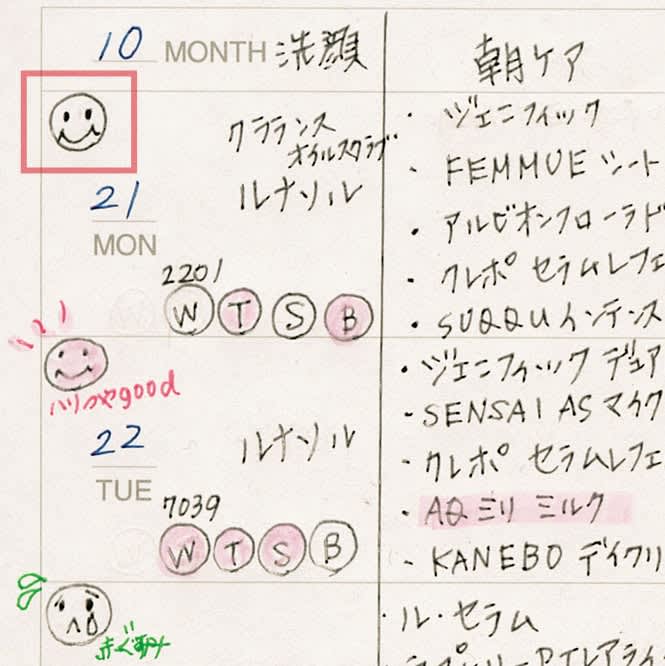 10 MONTH 洗顔 朝ケア
クラランス
オイルスクラブ
ルナソル
・ジェニフィック
・FEMMUE シート
・アルビオンフローラド
・クレポ セラムレフェ
・SUQQU インテンス
21
MON
2201
W T S B
ハリつやgood
22
TUE
ルナソル
7039
W T S B
・ジェニフィック デュア
・SENSAI AS マイク
・クレポ セラムレフェ
・AQ ミリ ミルク
・KANEBO デイクリ
・ル・セラム